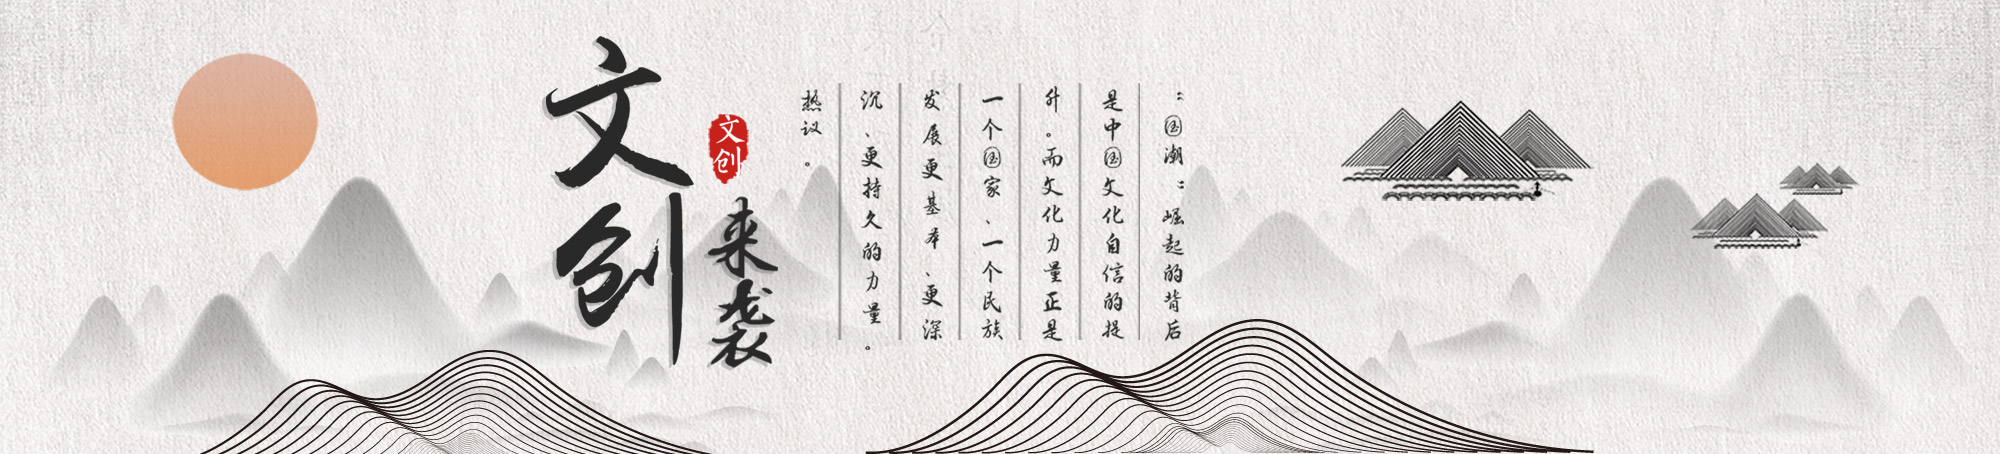 文创
文创
来袭
：国潮：崛起的背后
是中国文化自信的提
升。而文化力量正是
一个国家、一个民族
发展更基本、更深
沉、更持久的力量。
热议。